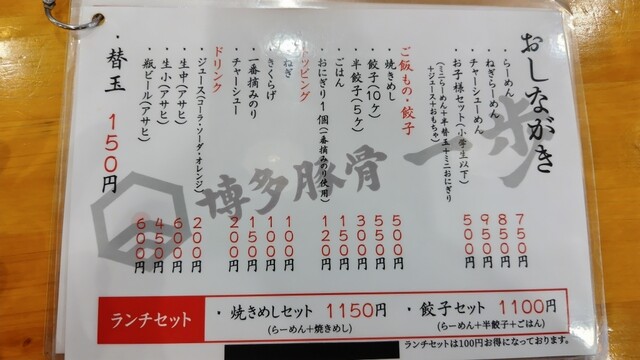 おしながき
・らーめん 750円
・ねぎらーめん 850円
・チャーシューめん 950円
・お子様セット(小学生以下) 500円
(ミニらーめん+半替玉+ミニおにぎり
+ジュース+おもちゃ)
ご飯もの・餃子
・焼きめし 500円
・餃子(10ケ) 500円
・半餃子(5ケ) 300円
・ごはん 150円
・おにぎり1個(一番摘みのり使用) 120円
トッピング
・ねぎ 100円
・きくらげ 100円
・一番摘みのり 150円
・チャーシュー 200円
ドリンク
・ジュース(コーラ・ソーダ・オレンジ) 200円
・生中(アサヒ) 600円
・生小(アサヒ) 450円
・瓶ビール(アサヒ) 600円
・替玉 150円
博多豚骨 一歩
ランチセット
・焼きめしセット 1150円
(らーめん+焼きめし)
・餃子セット 1100円
(らーめん+半餃子+ごはん)
ランチセットは100円お得になっております。